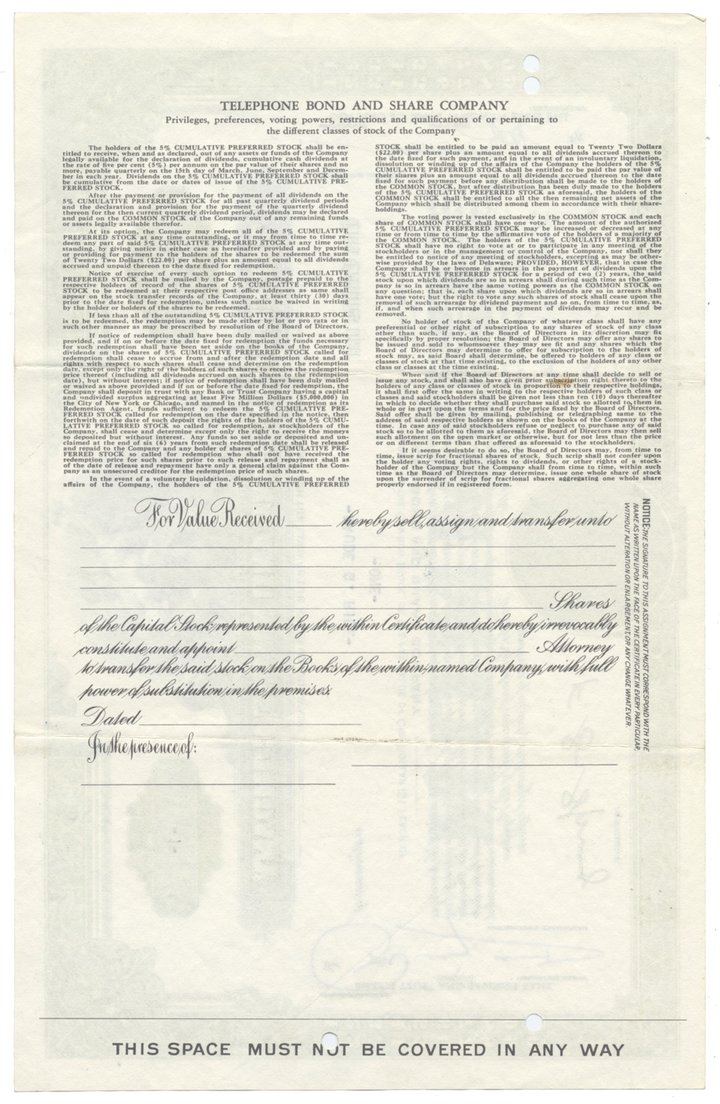 TELEPHONE BOND AND SHARE COMPANY
Privileges, preferences, voting powers, restrictions and qualifications of or pertaining to
the different classes of stock of the Company
The holders of the 5% CUMULATIVE PREFERRED STOCK shall be en-
titled to receive, when and as declared, out of any assets or funds of the Company
legally available for the declaration of dividends, cumulative cash dividends at
the rate of five per cent (5%) per annum on the par value of their shares and no
more, payable quarterly on the 15th day of March, June, September and Decem-
ber in each year. Dividends on the 5% CUMULATIVE PREFERRED STOCK shall
be cumulative from the date or dates of issue of the 5% CUMULATIVE PRE-
FERRED STOCK.
After the payment or provision for the payment of all dividends on the
5% CUMULATIVE PREFERRED STOCK for all past quarterly dividend periods
and the declaration and provision for the payment of the quarterly dividend
thereon for the then current quarterly dividend period, dividends may be declared
and paid on the COMMON STOCK of the Company out of any remaining funds
or assets legally available therefor.
At its option, the Company may redeem all of the 5% CUMULATIVE
PREFERRED STOCK at any time outstanding, or it may from time to time re-
deem any part of said 5% CUMULATIVE PREFERRED STOCK at any time out-
standing, by giving notice in either case as hereinafter provided and by paying
or providing for payment to the holders of the shares to be redeemed the sum
of Twenty Two Dollars ($22.00) per share plus an amount equal to all dividends
accrued and unpaid thereon to the date fixed for redemption.
Notice of exercise of every such option to redeem 5% CUMULATIVE
PREFERRED STOCK shall be mailed by the Company, postage prepaid to the
respective holders of record of the shares of 5% CUMULATIVE PREFERRED
STOCK to be redeemed at their respective post office addresses as same shall
appear on the stock transfer records of the Company, at least thirty (30) days
prior to the date fixed for redemption, unless such notice be waived in writing
by the holder or holders of the shares to be redeemed.
If less than all of the outstanding 5% CUMULATIVE PREFERRED STOCK
is to be redeemed, the redemption may be made either by lot or pro rata or in
such other manner as may be prescribed by resolution of the Board of Directors.
If notice of redemption shall have been duly mailed or waived as above
provided, and if on or before the date fixed for redemption the funds necessary
for such redemption shall have been set aside on the books of the Company,
dividends on the shares of 5% CUMULATIVE PREFERRED STOCK called for
redemption shall cease to accrue from and after the redemption date and all
rights with respect to such shares shall cease and determine on the redemption
date, except only the right of the holders of such shares to receive the redemption
price thereof (including all dividends accrued on such shares to the redemption
date), but without interest; if notice of redemption shall have been duly mailed
or waived as above provided and if on or before the date fixed for redemption, the
Company shall deposit in trust with any Bank or Trust Company having a capital
and undivided surplus aggregating at least Five Million Dollars ($5,000,000) in
the City of New York or Chicago, and named in the notice of redemption as its
Redemption Agent, funds sufficient to redeem the 5% CUMULATIVE PRE-
FERRED STOCK called for redemption on the date specified in the notice, then
forthwith on the date of such deposit the rights of the holders of the 5% CUMU-
LATIVE PREFERRED STOCK so called for redemption, as stockholders of the
Company, shall cease and determine except only the right to receive the moneys
so deposited but without interest. Any funds so set aside or deposited and un-
claimed at the end of six (6) years from such redemption date shall be released
and repaid to the Company and any holder of shares of 5% CUMULATIVE PRE-
FERRED STOCK so called for redemption who shall not have received the
redemption price for such shares prior to such release and repayment shall as
of the date of release and repayment have only a general claim against the Com-
pany as an unsecured creditor for the redemption price of such shares.
In the event of a voluntary liquidation, dissolution or winding up of the
affairs of the Company, the holders of the 5% CUMULATIVE PREFERRED
STOCK shall be entitled to be paid an amount equal to Twenty Two Dollars
($22.00) per share plus an amount equal to all dividends accrued thereon to
the date fixed for such payment, and in the event of an involuntary liquidation,
dissolution or winding up of the affairs of the Company the holders of the 5%
CUMULATIVE PREFERRED STOCK shall be entitled to be paid the par value of
their shares plus an amount equal to all dividends accrued thereon to the date
fixed for such payment before any distribution shall be made to the holders of
the COMMON STOCK, but after distribution has been duly made to the holders
of the 5% CUMULATIVE PREFERRED STOCK as aforesaid, the holders of the
COMMON STOCK shall be entitled to all the then remaining net assets of the
Company which shall be distributed among them in accordance with their share-
holdings.
The voting power is vested exclusively in the COMMON STOCK and each
share of COMMON STOCK shall have one vote. The amount of the authorized
5% CUMULATIVE PREFERRED STOCK may be increased or decreased at any
time or from time to time by the affirmative vote of the holders of a majority of
the COMMON STOCK. The holders of the 5% CUMULATIVE PREFERRED
STOCK shall have no right to vote at or to participate in any meeting of the
stockholders or in the management or control of the Company, nor shall they
be entitled to notice of any meeting of stockholders, excepting as may be other-
wise provided by the laws of Delaware; PROVIDED, HOWEVER, that in case the
Company shall be or become in arrears in the payment of dividends upon the
5% CUMULATIVE PREFERRED STOCK for a period of two (2) years, the said
stock upon which dividends are so in arrears shall during such time as the Com-
pany is so in arrears have the same voting powers as the COMMON STOCK on
any question; that is, each share upon which dividends are so in arrears shall
have one vote; but the right to vote any such shares of stock shall cease upon the
removal of such arrearage by dividend payment and so on, from time to time, as,
if, and when such arrearage in the payment of dividends may recur and be
removed.
No holder of stock of the Company of whatever class shall have any
preferential or other right of subscription to any shares of stock of any class
other than such, if any, as the Board of Directors in its discretion may fix
specifically by proper resolution; the Board of Directors may offer any shares to
be issued and sold to whomsoever they may see fit and any shares which the
Board of Directors may determine to offer for subscription to the holders of
stock may, as said Board shall determine, be offered to holders of any class or
classes of stock at that time existing, to the exclusion of the holders of any other
class or classes at the time existing.
When and if the Board of Directors at any time shall decide to sell or
issue any stock, and shall also have given prior subscription right thereto to the
holders of any class or classes of stock in proportion to their respective holdings,
it shall first offer the same in writing to the respective holders of such class or
classes and said stockholders shall be given not less than ten (10) days thereafter
in which to decide whether they shall purchase said stock so allotted to them in
whole or in part upon the terms and for the price fixed by the Board of Directors.
Said offer shall be given by mailing, publishing or telegraphing same to the
address of said respective holders as shown on the books of the Company at the
time. In case any of said stockholders refuse or neglect to purchase any of said
stock so to be allotted to them as aforesaid, the Board of Directors may then sell
such allotment on the open market or otherwise, but for not less than the price
or on different terms than that offered as aforesaid to the stockholders.
If it seems desirable to do so, the Board of Directors may, from time to
time, issue scrip for fractional shares of stock. Such scrip shall not confer upon
the holder any voting rights, rights to dividends, or other rights of a stock-
holder of the Company but the Company shall from time to time, within such
time as the Board of Directors may determine, issue one whole share of stock
upon the surrender of scrip for fractional shares aggregating one whole share
properly endorsed if in registered form.
For Value Received hereby sell, assign and transfer unto
Shares
of the Capital Stock represented by the within Certificate and do hereby irrevocably
constitute and appoint Attorney
to transfer the said stock on the Books of the within-named Company, with full
power of substitution in the premises.
Dated
In the presence of:
NOTICE: THE SIGNATURE TO THIS ASSIGNMENT MUST CORRESPOND WITH THE
NAME AS WRITTEN UPON THE FACE OF THE CERTIFICATE IN EVERY PARTICULAR,
WITHOUT ALTERATION OR ENLARGEMENT OR ANY CHANGE WHATEVER.
THIS SPACE MUST NOT BE COVERED IN ANY WAY